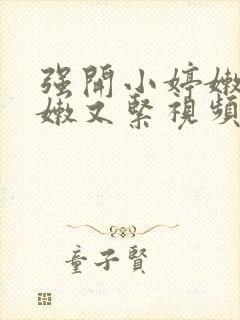 强開小婷嫩
嫩又緊視頻
童子賢